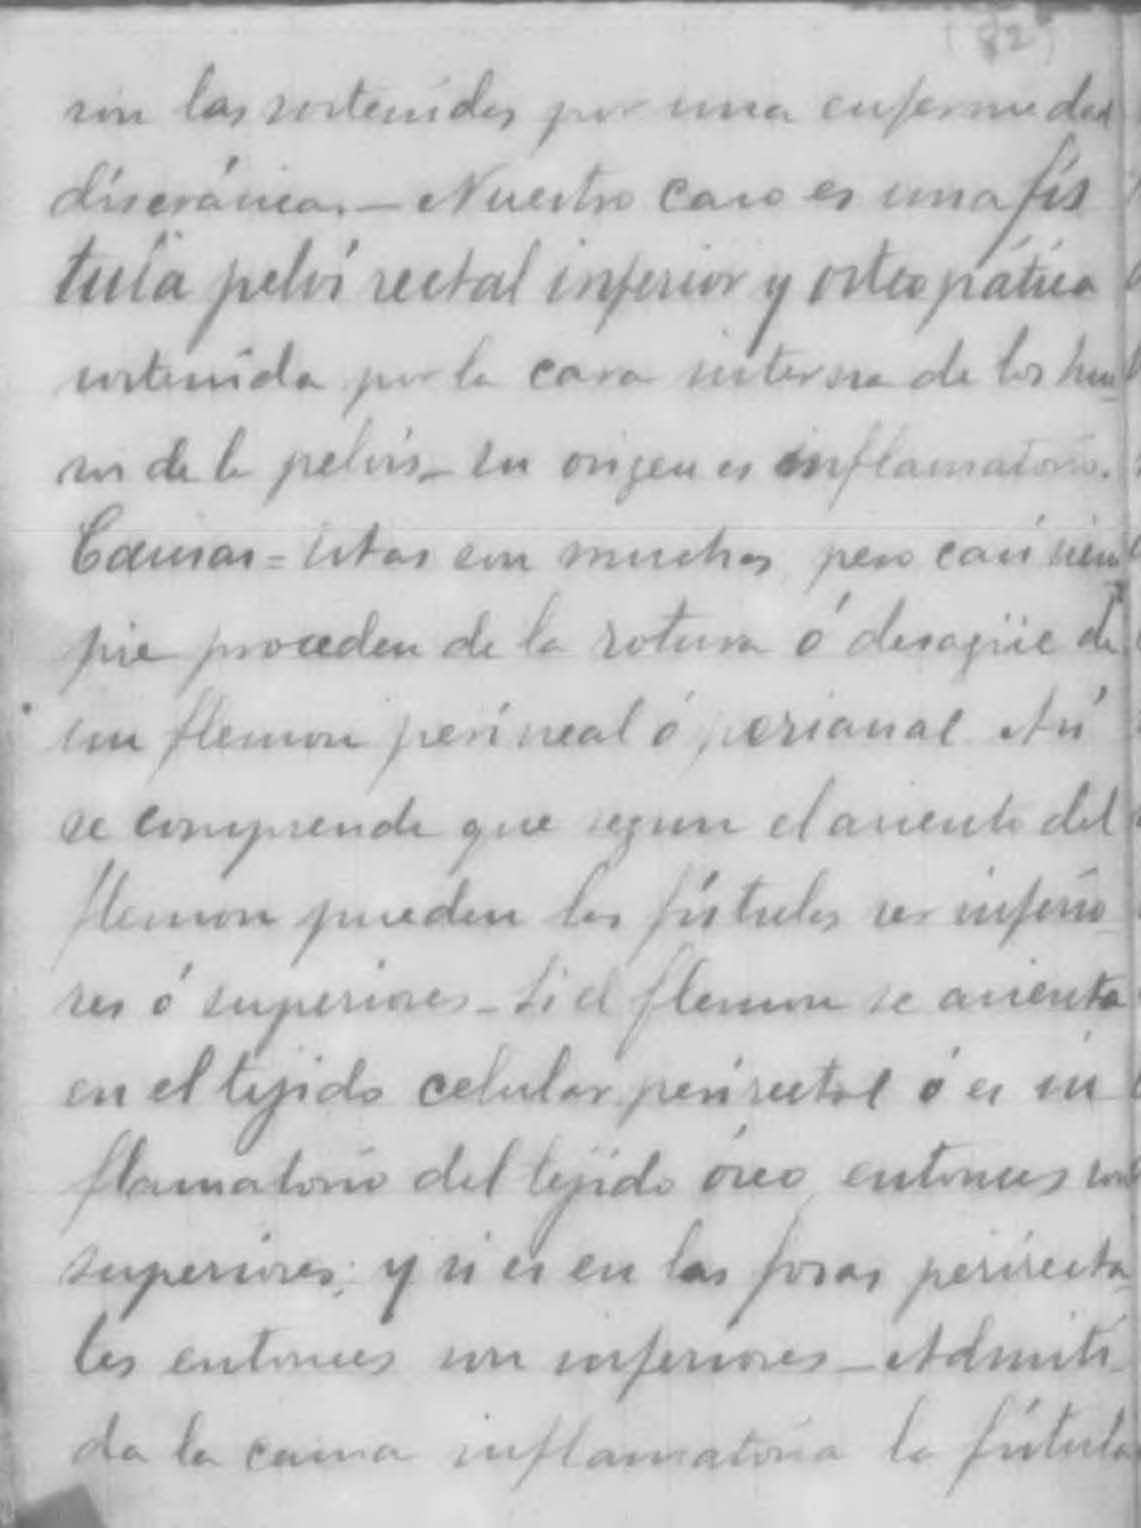 (82)
son las sostenidas por una enfermedad
discrásica.— Nuestro caso es una fís
tula pelvi rectal inferior y osteopática
sostenida por la cara interna de los hue
sos de la pelvis— su origen es inflamatorio.
Causas = Estas son muchas pero casi siem
pre proceden de la rotura ó desagüe de
un flemon perineal ó perianal Así
se comprende que segun el asiento del
flemon pueden las fístulas ser inferio
res ó superiores— Si el flemon se asienta
en el tejido celular perirectal ó es in
flamatorio del tejido óseo entonces son
superiores; y si es en las fosas perirecta
les entonces son inferiores— Admiti
da la causa inflamatoria la fístula